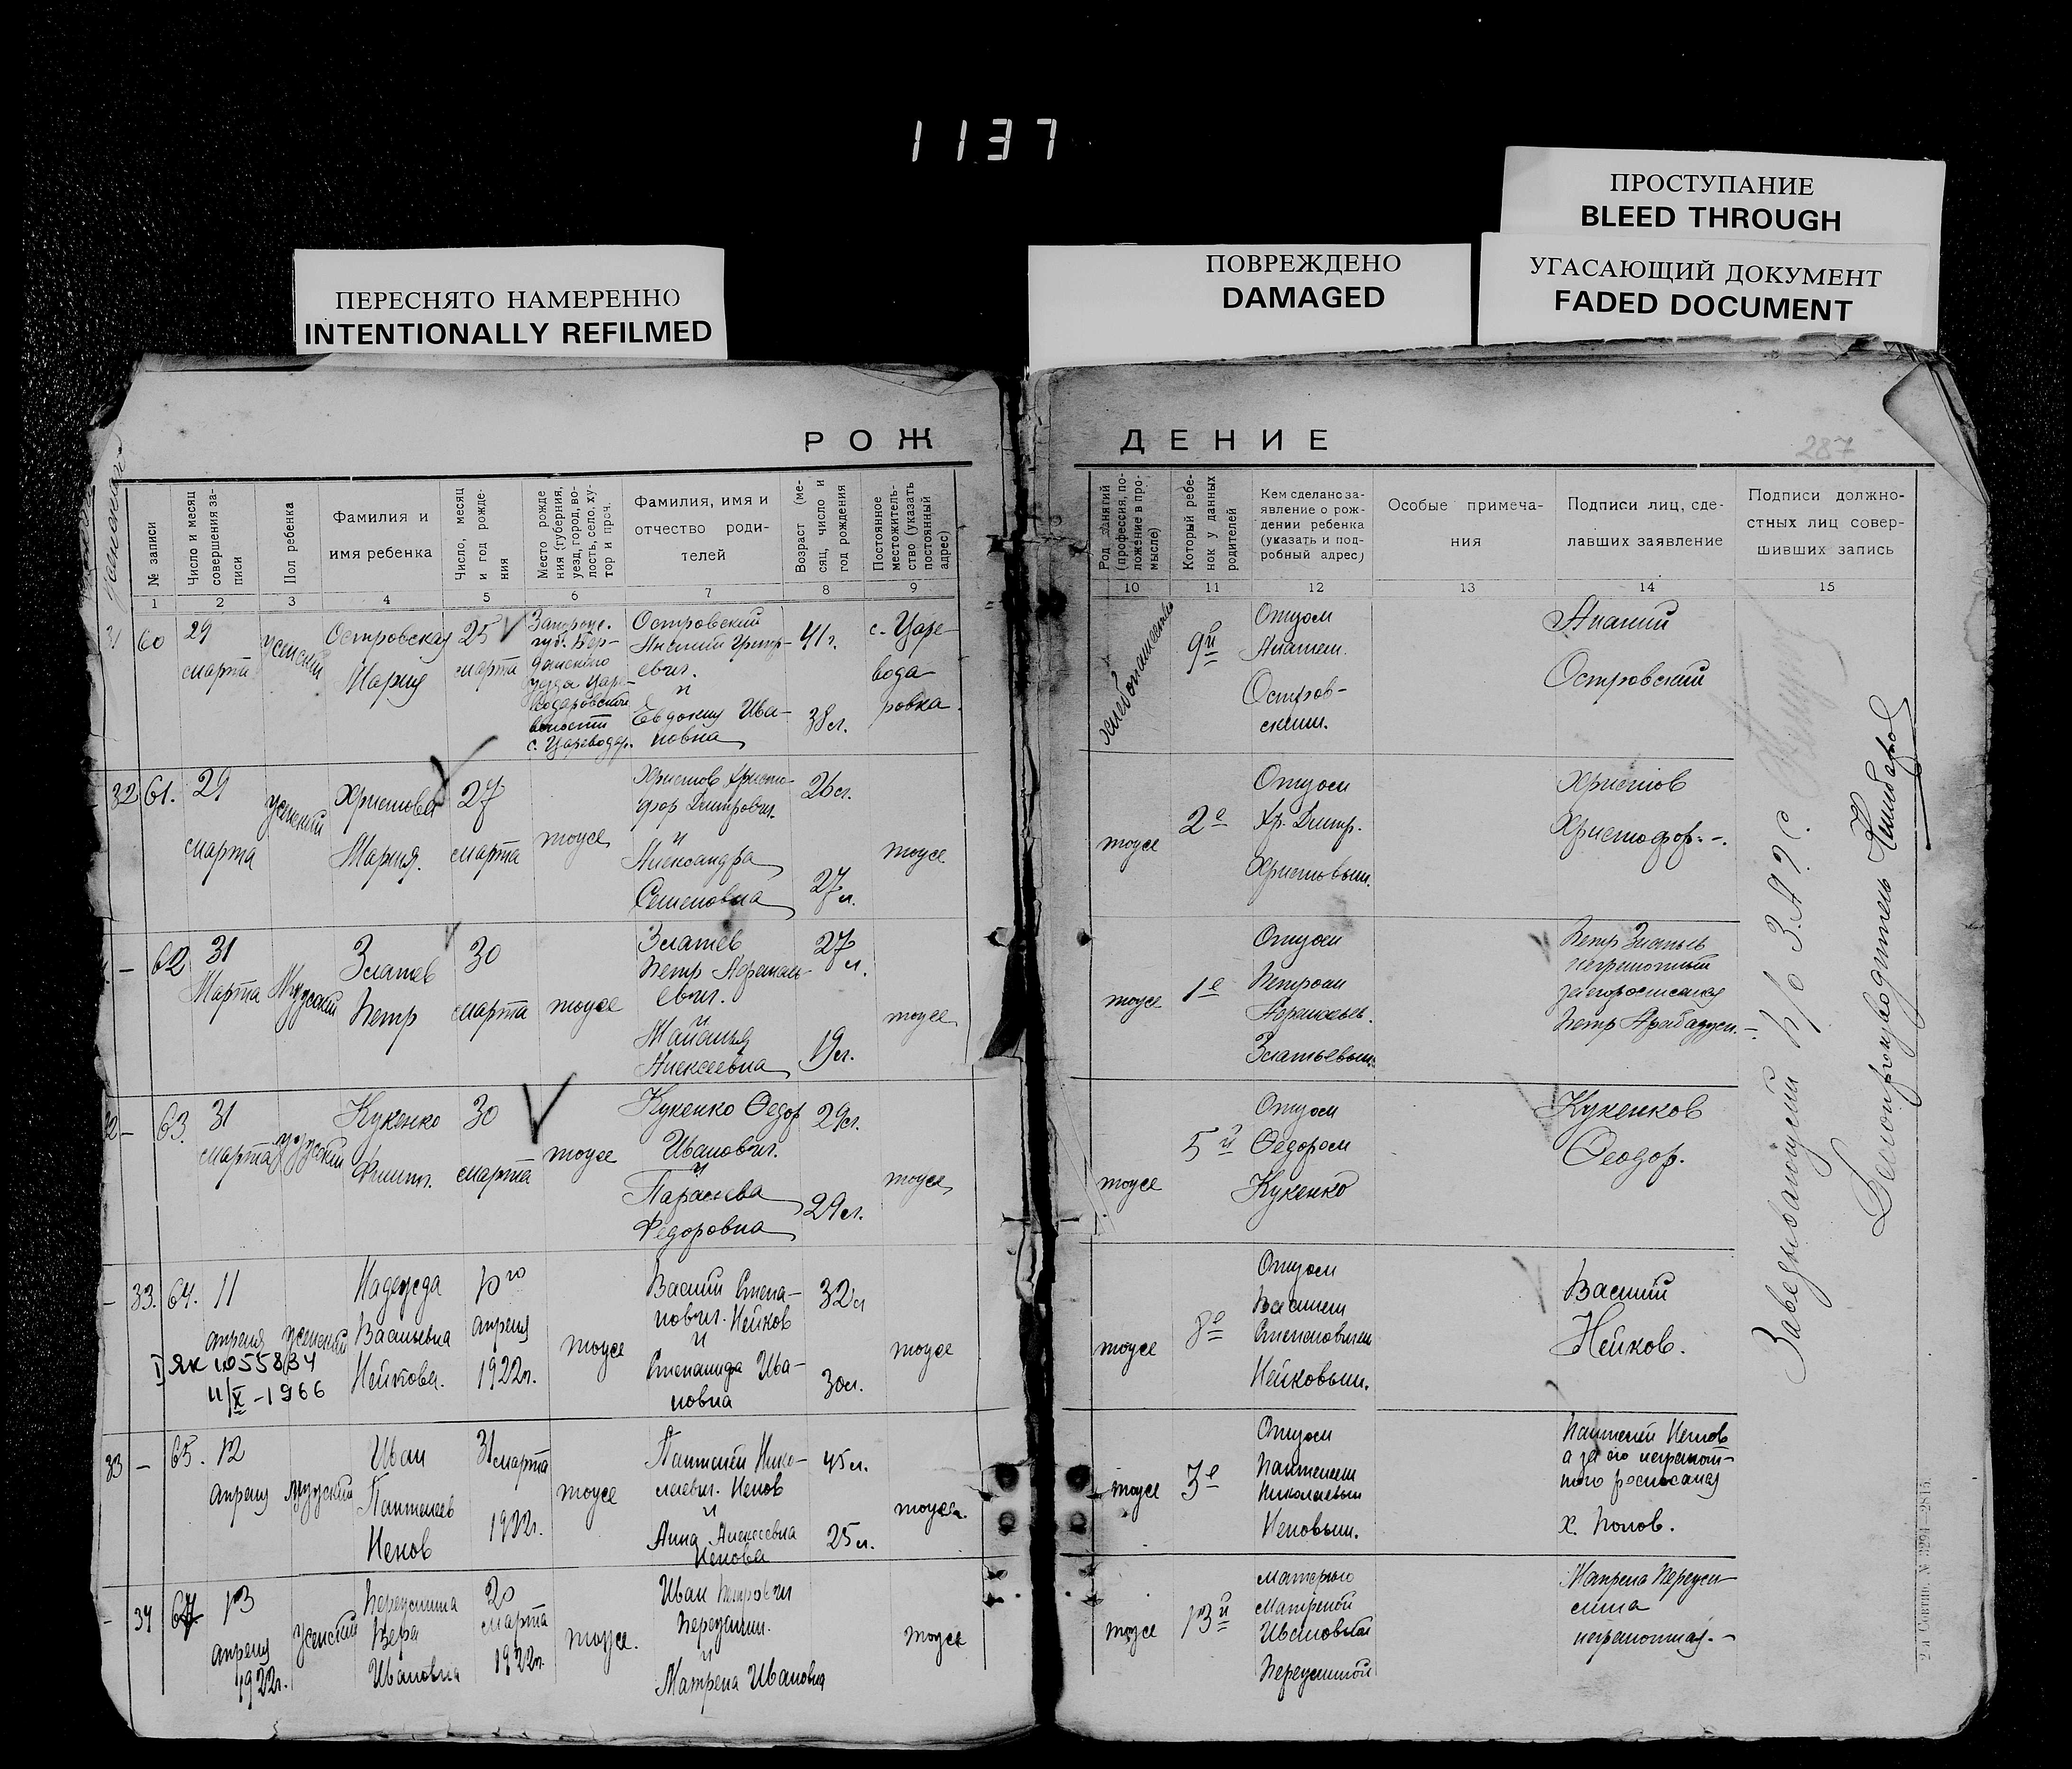 1137
ПРОСТУПАНИЕ
BLEED THROUGH
ПЕРЕСНЯТО НАМЕРЕННО
INTENTIONALLY REFILMED
ПОВРЕЖДЕНО
DAMAGED
УГАСАЮЩИЙ ДОКУМЕНТ
FADED DOCUMENT
РОЖ
ДЕНИЕ
287
№ записи
Число и месяц
совершения за-
писи
Пол ребенка
Фамилия и
имя ребенка
Число, месяц
и год рожде-
ния
Место рожде
ния (губерния,
уезд, город, во-
лость, село, ху-
тор и проч.
Фамилия, имя и
отчество роди-
телей
Возраст (ме-
сяц, число и
год рождения
Постоянное
местожитель-
ство (указать
постоянный
адрес)
Род занятий
(профессия, по-
ложение в про-
мысле)
Который ребе-
нок у данных
родителей
Кем сделано за-
явление о рож-
дении ребенка
(указать и под-
робный адрес)
Особые примеча-
ния
Подписи лиц, сде-
лавших заявление
Подписи должно-
стных лиц совер-
шивших запись
1 2 3 4 5 6 7 8 9
10 11 12 13 14 15
31 60
29
марта
женский
Островская
Мария
25
марта
Запорож.
губ. Бер-
дянского
уезда Царе-
водаровской
волости
с. Цареводар.
Островский
Ананий
евич.
и
Евдокия Ива-
новна
41 г.
38 л.
с. Царе
вода
ровка.
хлебопашество
9й
Отцом
Ананием
Остров-
ским.
Ананий
Островский
32 61.
29
марта
женский
Христова
Мария.
27
марта
тоже
Христов Христо-
фор Дмитрович.
и
Александра
Семеновна
26 л.
27 л.
тоже
тоже
2е
Отцом
Хр. Дмитр.
Христовым.
Христов
Христофор. -.
- 62
31
Марта
Мужской
Златев
Петр
30
марта
тоже
Златев
Петр
евич.
и
Маланья
Алексеевна
27 л.
19 л.
тоже
тоже
1е
Отцом
Петром
Златьевым.
Петр Златьев
неграмотный
за его росписался
Петр
32 - 63.
31
марта
мужской
Кукенко
Филип.
30
марта
тоже
Кукенко Федор
Иванович.
и
Параскева
Федоровна
29 л.
29 л.
тоже
тоже
5й
Отцом
Федором
Кукенко
Кукенков
Феодор.
- 33. 64.
11
апреля
женский
Надежда
Васильевна
Нейкова.
10го
апреля
1922 г.
тоже
Василий Степа-
нович. Нейков
и
Степанида Ива-
новна
32 л
30 л.
тоже
I ЯК №055834
11/X-1966
тоже
8е
Отцом
Василием
Степановичем
Нейковым.
Василий
Нейков.
33 - 65.
12
апреля
мужской
Иван
Пантелеев
Ненов
31 марта
1922 г.
тоже
Пантелей Нико-
лаевич. Ненов
и
Анна Алексеевна
Ненова
45 л.
25 л.
тоже.
тоже
3е
Отцом
Пантелеем
Николаевым
Неновым.
Пантелей Ненов
а за его неграмот-
ного росписался
Х. Попов.
- 34
13
апреля
1922 г.
женский
Вера
Ивановна
20
марта
1922 г.
тоже.
Иван Петрович
и
Матрена Ивановна
тоже
тоже
13й
матерью
Матреной
Ивановной
Матрена
неграмотная. -
Заведывающий п/о З.А.Г.С.
Делопроизводитель
2-я Совтип. № 3294—2815.